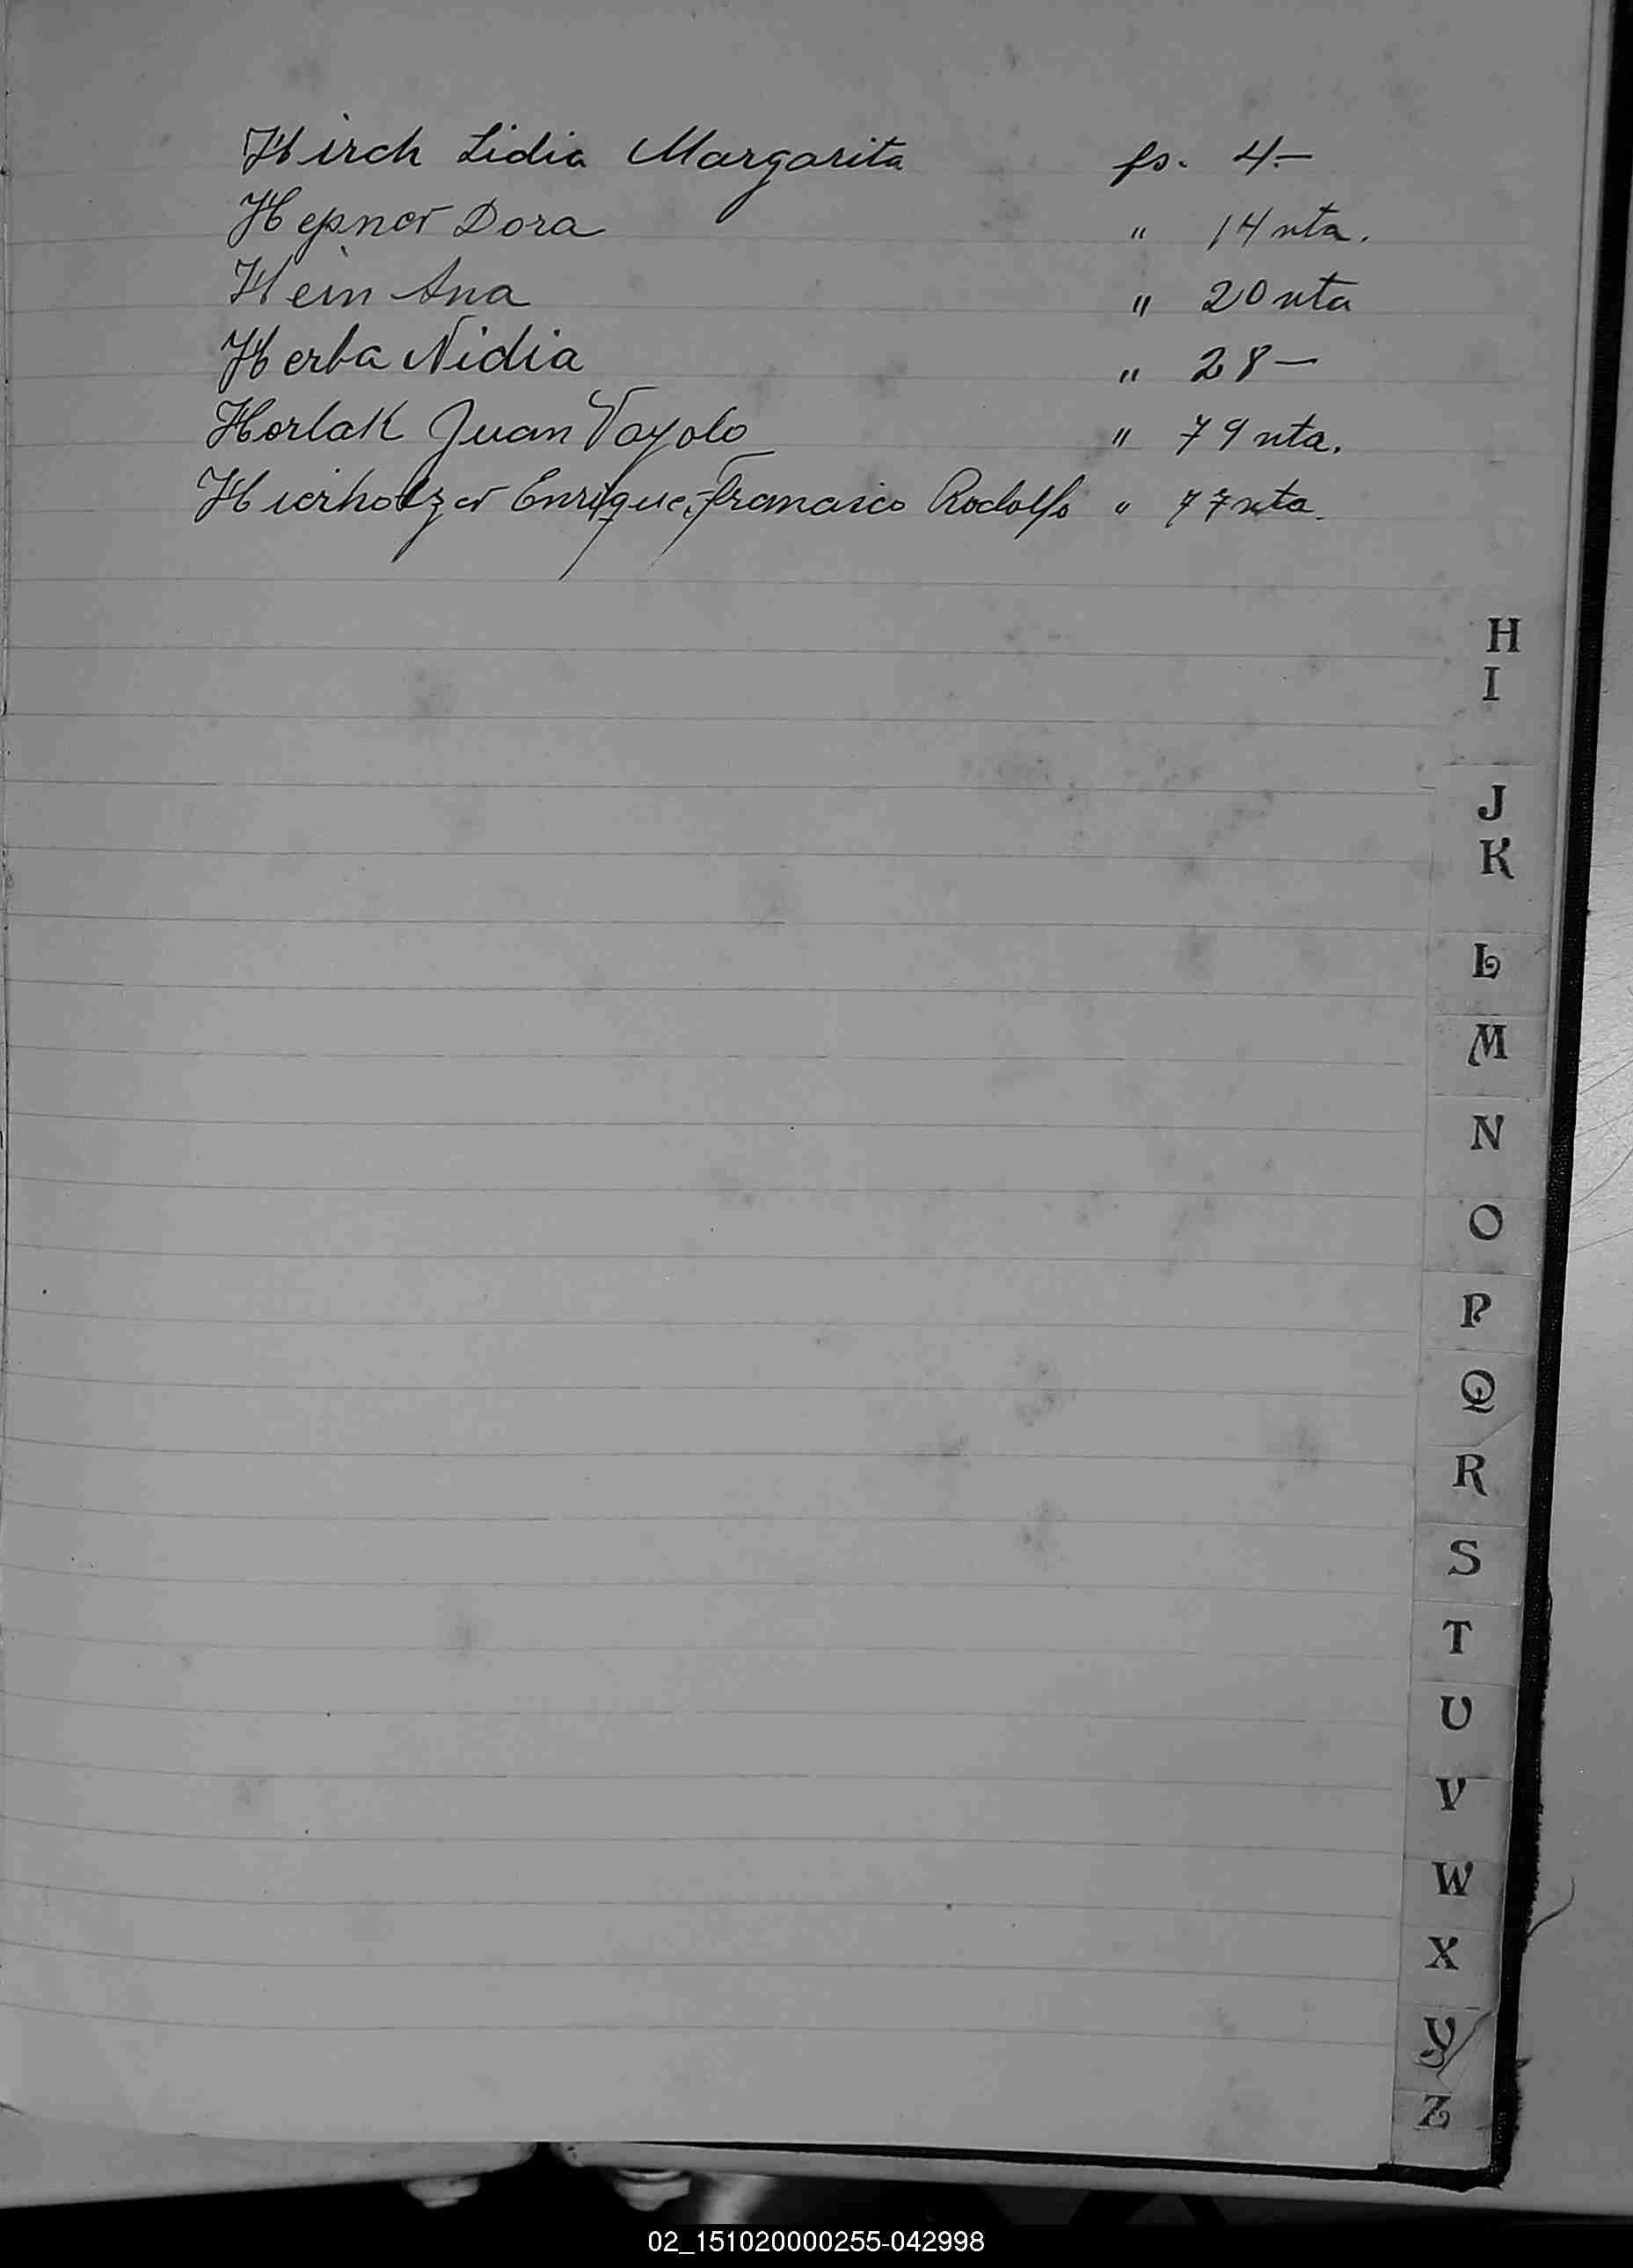 Hirch Lidia Margarita fs. 4.—
Hepner Dora " 14 vta.
Hein Ana " 20 vta
Herba Nidia " 28—
Horlak Juan " 79 vta.
Hierholzer Enrique, Francisco Rodolfo " 77 vta.
H
I
J
K
L
M
N
O
P
Q
R
S
T
U
V
W
X
Y
Z
02_151020000255-042998